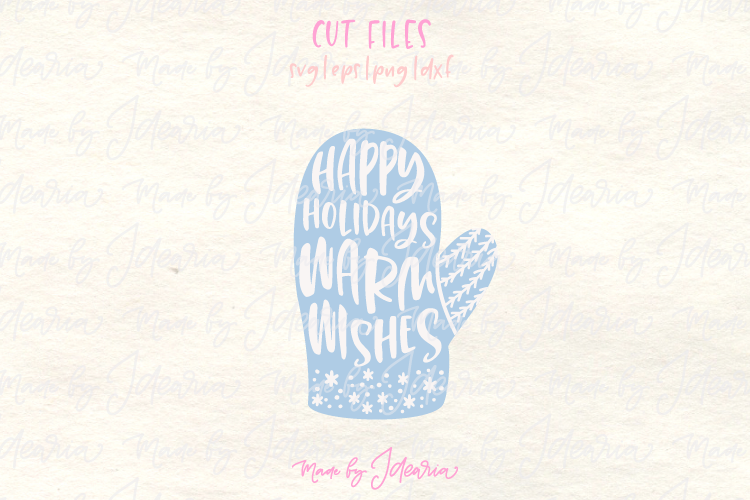 CUT FILES
svg|eps|png|dxf
HAPPY
HOLIDAYS
WARM
WISHES
Made by Idearia